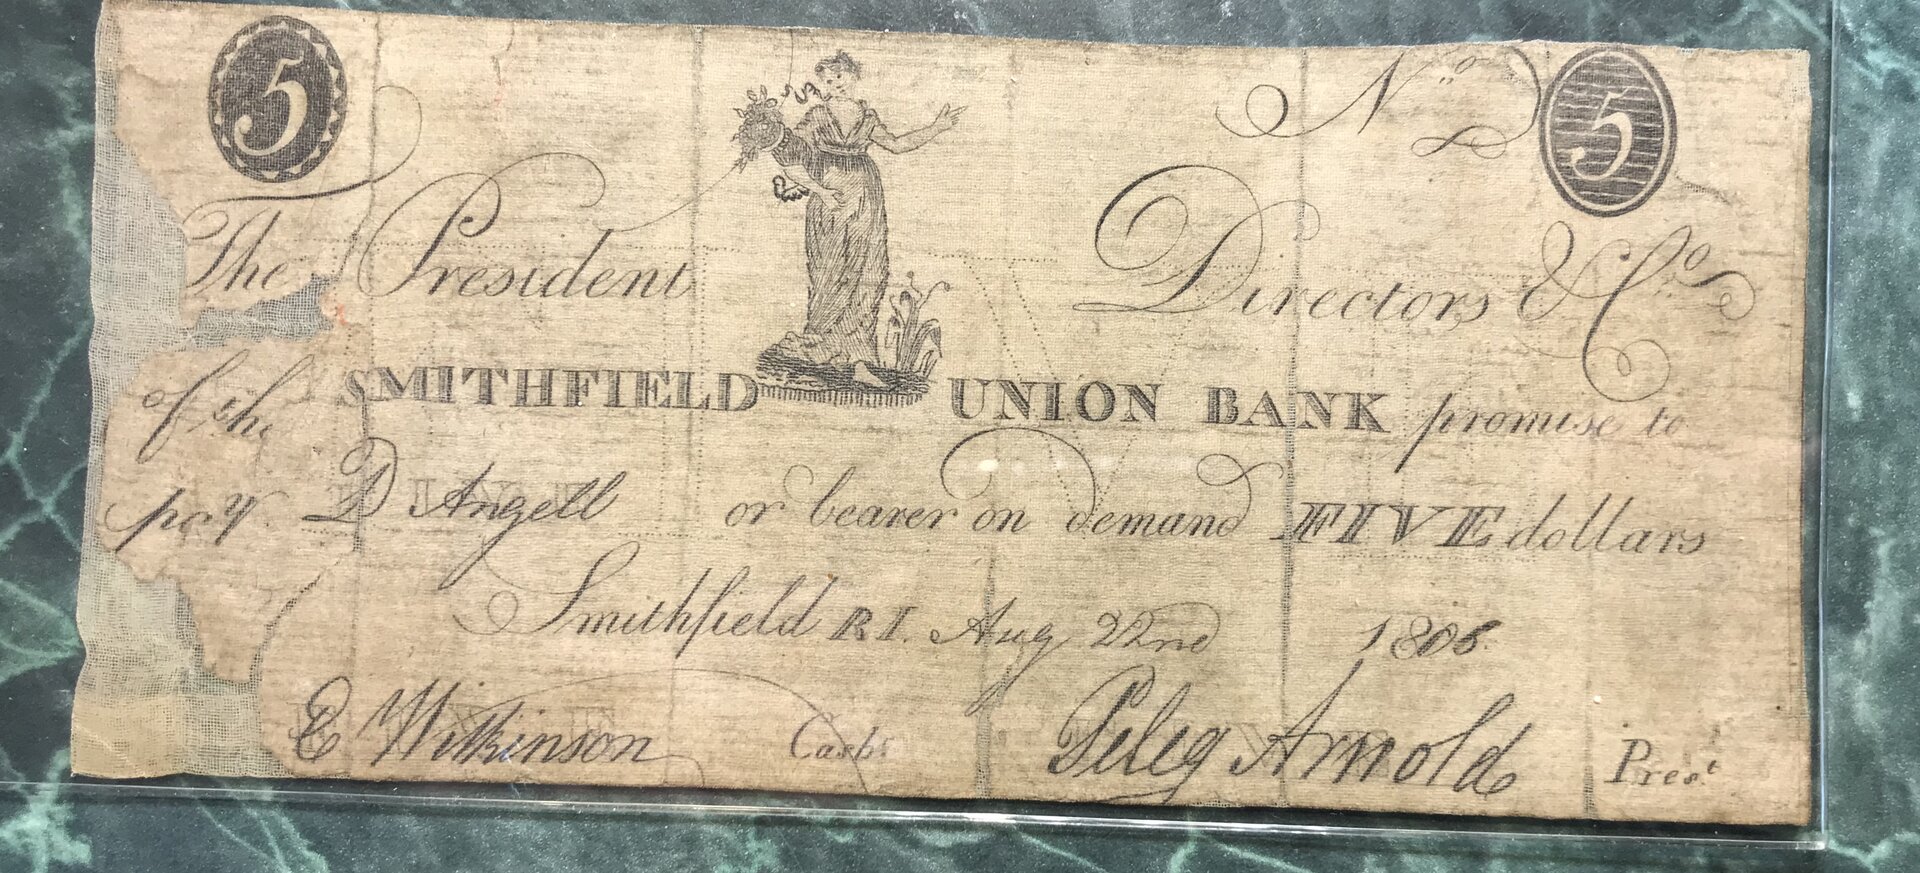 5 Nº 5
The President Directors & Cº
of the SMITHFIELD UNION BANK promise to
pay D Angell or bearer on demand FIVE dollars
Smithfield RI. Aug 22nd 1805.
E Wilkinson Cashr Peleg Arnold Prest